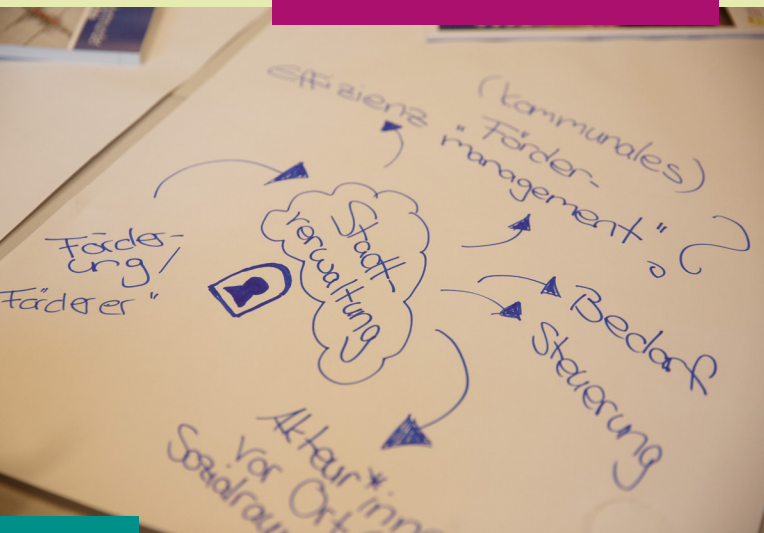 Effizienz
(kommunales)
"Förder-
management"?
Förder-
ung /
Förderer"
Stadt
verwaltung
Bedarf
Steuerung
Akteur*inne
vor Ort
Sozialrau